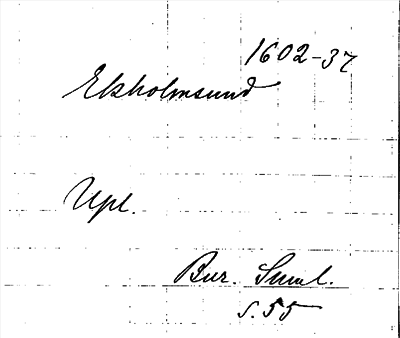 1602-37
Ekholmsund
Upl.
Bur. Suml.
s. 55